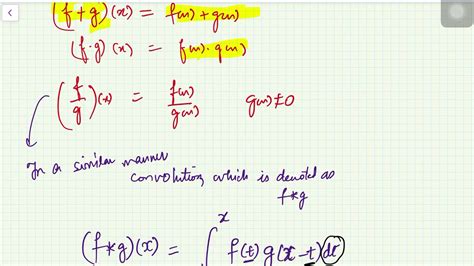 (f+g)(x) = f(x)+g(x)
(f·g)(x) = f(x)·g(x)
(f/g)(x) = f(x)/g(x)   g(x)≠0
In a similar manner
convolution, which is denoted as
f*g
(f*g)(x) = ∫ˣ f(t) g(x-t) dt